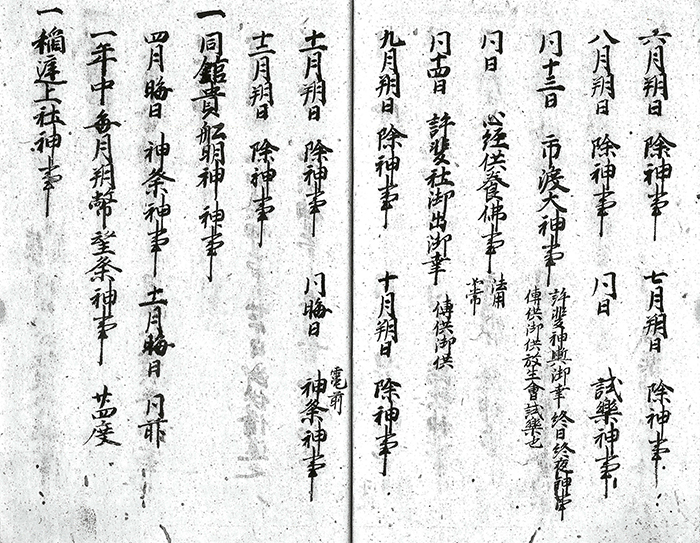 六月朔日 除神事 七月朔日 除神事
八月朔日 除神事 同日 試樂神事
同十三日 市渡大神事 許斐神輿御幸 終日終夜神事
傳供御供放生會試樂也
同日 心經供養佛事 法用
同十四日 許斐社御出御幸 傳供御供
九月朔日 除神事 十月朔日 除神事
十一月朔日 除神事 同晦日 神祭神事
十二月朔日 除神事
一 同舘貴舩明神神事
四月晦日 神祭神事 十一月晦日 同前
一年中每月朔幣望祭神事 廿四度
一 稲上社神事